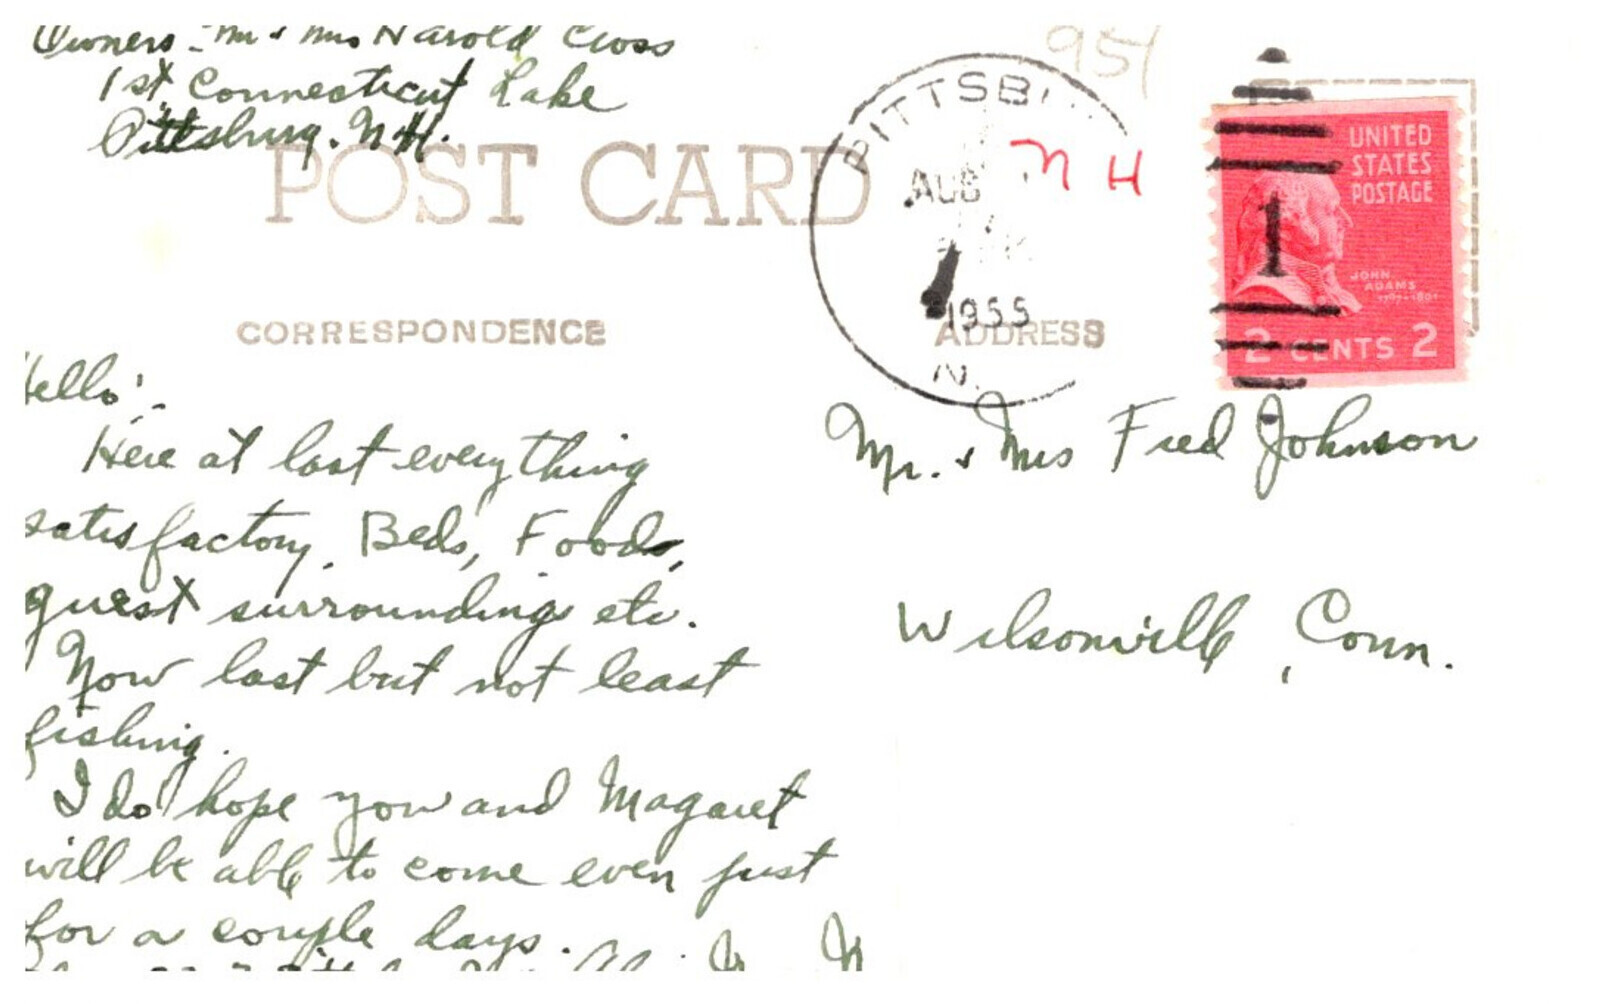 Owners - Mr & Mrs Harold Cross
1st Connecticut Lake
Pittsburg. N.H.
951
POST CARD
PITTSB
N H
AUG
1955
N.
1
UNITED
STATES
POSTAGE
JOHN
ADAMS
1797-1801
2 CENTS 2
CORRESPONDENCE
ADDRESS
Hello!
Here at last everything
satisfactory. Beds, Foods,
guest surroundings etc.
Now last but not least
fishing.
I do hope you and Magaret
will be able to come even just
for a couple days.
Mr. & Mrs Fred Johnson
Wilsonville, Conn.